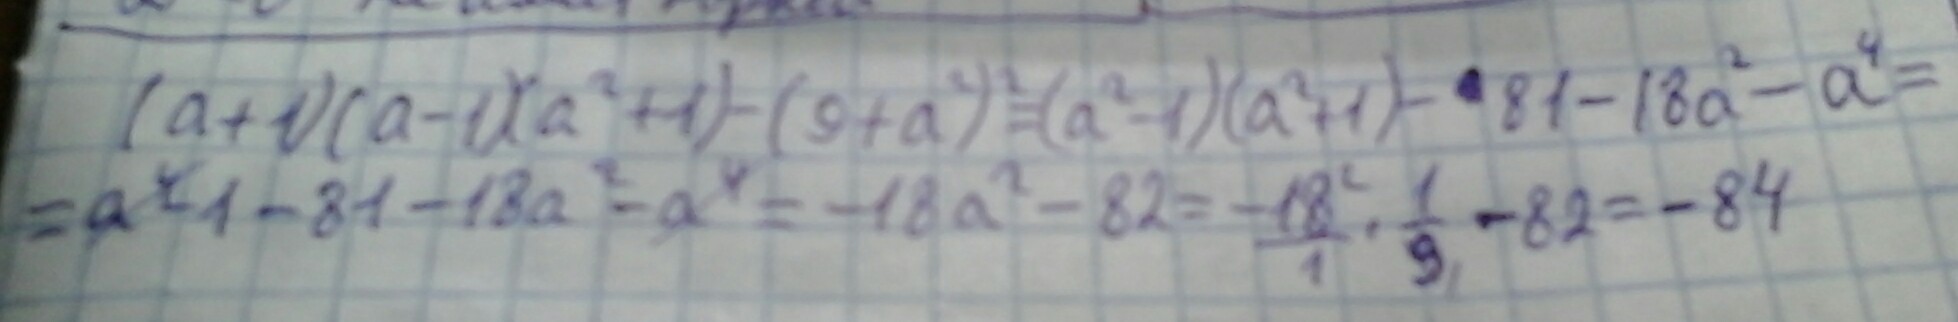 (a+1)(a-1)(a²+1)-(9+a²)²=(a²-1)(a²+1)-81-18a²-a⁴=
=a⁴-1-81-18a²-a⁴=-18a²-82=-18²/1·1/9₁-82=-84